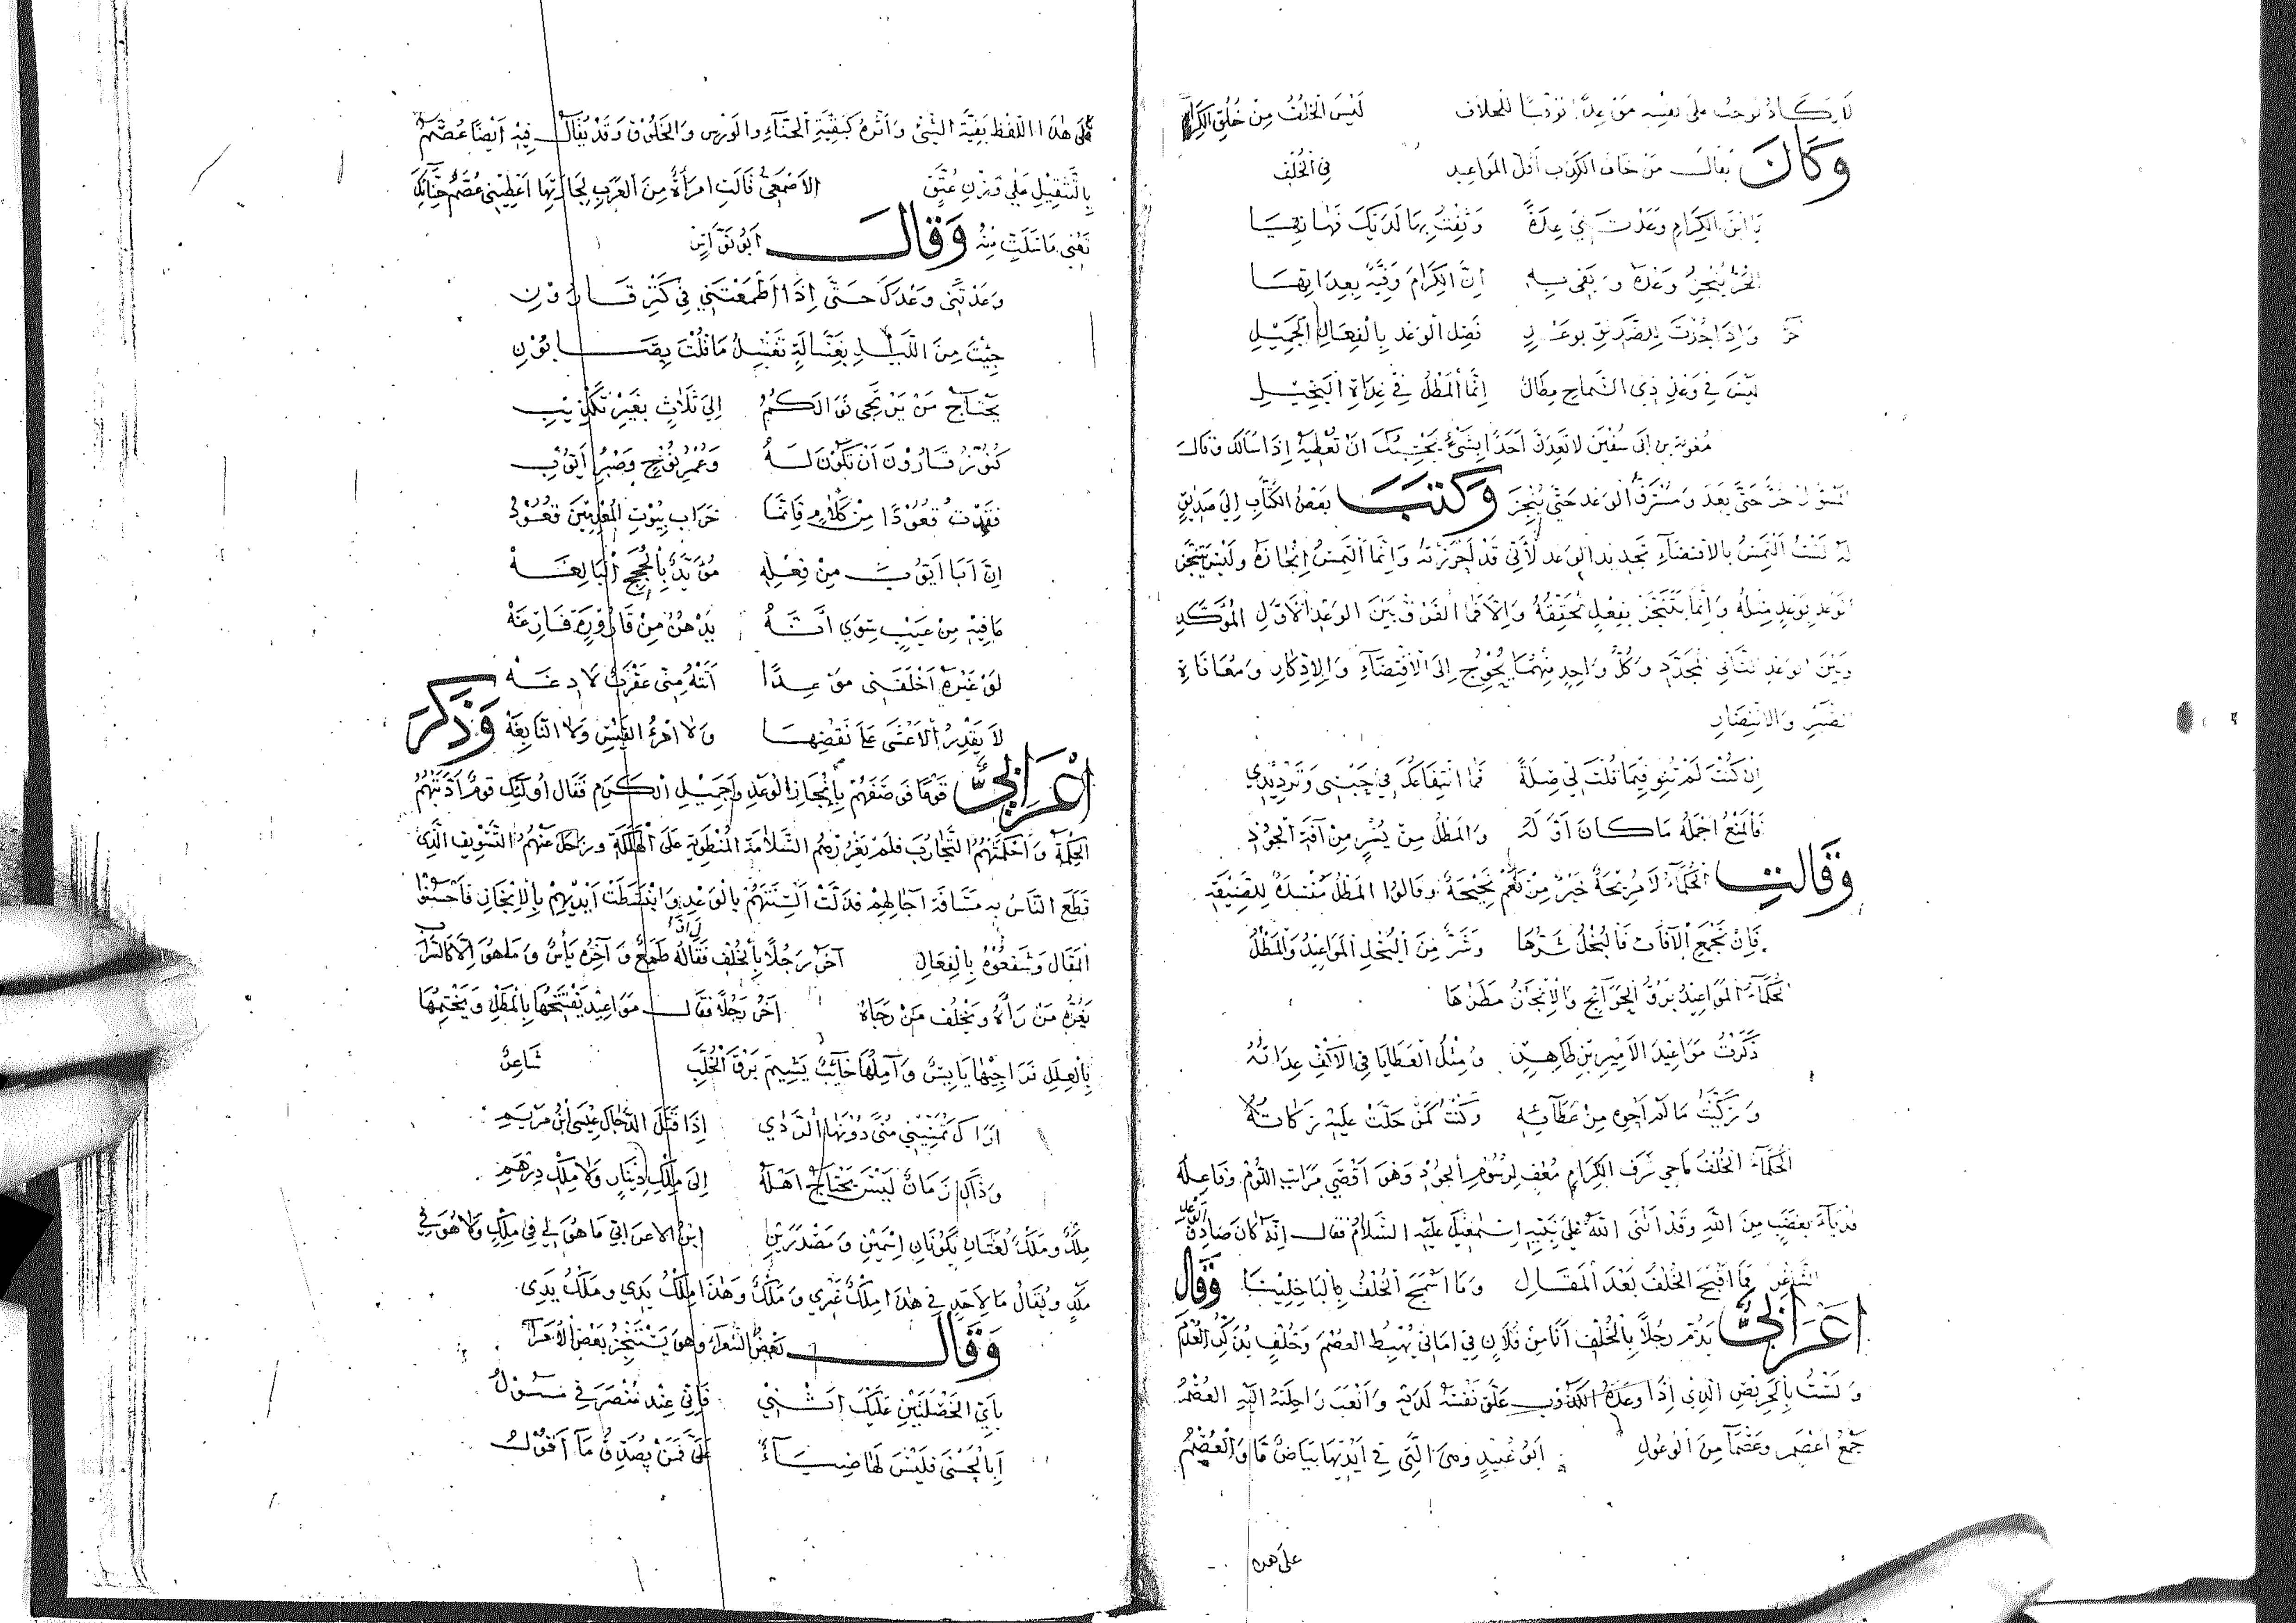 لَيْسَ الخُلْفُ مِنْ خُلُقِ الكِرَامِ
وَكَانَ يُقَالُ مَنْ خَافَ الكَذِبَ أَقَلَّ المَوَاعِيدَ في الخُلْفِ
يَا ابْنَ الكِرَامِ وَعَدْتَنِي عِدَةً وَثِقْتُ بِهَا لَدَيْكَ فَهَاتِهَا
الحُرُّ يُنْجِزُ وَعْدَهُ وَيَفِي بِهِ اِنَّ الكِرَامَ وَفِيَّةٌ بِعِدَاتِهَا
وَاِذَا جُدْتَ لِلصَّدِيقِ بِوَعْدٍ فَصِلِ الوَعْدَ بِالْفِعَالِ الجَمِيْلِ
لَيْسَ فِي وَعْدِ ذِي السَّمَاحِ مِطَالٌ اِنَّمَا المَطْلُ فِي عِدَاةِ البَخِيْلِ
مُعٰوية بن ابى سُفْيٰن لا تَعِدَنَّ اَحَدًا بِشَيْءٍ اَنْ تُعْطِيَهُ اِذَا سَأَلَكَ وقَالَ
المَسْؤُلُ حُرٌّ حَتَّى يَعِدَ وَمُسْتَرَقٌّ الوَعْدِ حَتَّى يُنْجِزَ وَكَتَبَ بَعْضُ الكُتَّابِ اِلَى صَدِيْقٍ
لَهُ لَسْتُ اَلْتَمِسُ بِالاِقْتِضَآءِ تَجْدِيْدَ الوَعْدِ لأَنِّي قَدْ اَحْرَزْتُهُ وَاِنَّمَا اَلْتَمِسُ اِنْجَازَهُ وَلَيْسَ يُنْجَزُ
الوَعْدُ بِوَعْدٍ مِثْلِهُ وَاِنَّمَا يُنْجَزُ بِفِعْلٍ يُحَقِّقُهُ وَاِلَّا فَمَا الفَرْقُ بَيْنَ الوَعْدِ الاَوَّلِ المُؤَكَّدِ
وَبَيْنَ الوَعْدِ الثَّانِي المُجَدَّدِ وَكُلُّ وَاحِدٍ مِنْهُمَا يُحْوِجُ اِلَى الاِقْتِضَآءِ وَالاِذْكَارِ وَمُعَانَاةِ
الصَّبْرِ وَالاِنْتِظَارِ
اِنْ كُنْتَ لَمْ تَنْوِ فِيمَا قُلْتَ لِي صِلَةً فَمَا انْتِفَاعُكَ فِي حَبْسِي وَتَرْدِيْدِي
فَالمَنْعُ اَجْمَلُهُ مَا كَانَ اَوَّلَهُ وَالمَطْلُ مِنْ يُسْرٍ مِنْ آفَةِ الجُوْدِ
وَقَالَتِ الحُكَمَآءُ لَا مُرِيْحَةٌ خَيْرٌ مِنْ نَعَمْ نَجِيْحَةٍ وَقَالُوا المَطْلُ مَفْسَدَةٌ لِلصَّنِيْعَةِ
فَاِنْ تُجْمَعِ الآفَاتُ فَالبُخْلُ شَرُّهَا وَشَرٌّ مِنَ البُخْلِ المَوَاعِيْدُ وَالمَطْلُ
الحُكَمَآءُ المَوَاعِيْدُ بَرْقُ الحَوَائِجِ وَالاِنْجَازُ مَطَرُهَا
ذَكَرْتُ مَوَاعِيْدَ الاَمِيْرِ بنِ طَاهِرٍ وَمِثْلُ العَطَايَا فِي الاَكُفِّ عِدَاتُهُ
وَزَكَّيْتُ مَالَمْ اَحْوِهِ مِنْ عَطَآئِهِ وَكُنْتُ كَمَنْ حَلَّتْ عَلَيْهِ زَكَاتُهُ
الحُكَمَآءُ الخُلْفُ مَاحِي شَرَفِ الكِرَامِ مُعْفٍ لِرُسُوْمِ الجُوْدِ وَهُوَ اَقْصَى مَرَاتِبِ اللُّوْمِ وَفَاعِلُهُ
قَدْ بَآءَ بِغَضَبٍ مِنَ اللّٰهِ وَقَدْ اَثْنَى اللّٰهُ عَلَى نَبِيِّهِ اِسْمٰعِيْلَ عَلَيْهِ السَّلَامُ فَقَالَ اِنَّهُ كَانَ صَادِقَ الوَعْدِ
الشَّاعِرُ فَمَا اَقْبَحَ الخُلْفَ بَعْدَ المَقَالِ وَمَا اَسْمَجَ الخُلْفَ بِالبَاخِلِيْنَا وَقَالَ
اَعْرَابِيٌّ يَذُمُّ رَجُلاً بِالخُلْفِ اَنَا مِنْ فُلَانٍ فِي اَمَانِيّ تُهْبِطُ العُصْمَ وَخُلْفٍ يُذَكِّرُ العُدْمَ
وَلَسْتُ بِالحَرِيْصِ الَّذِي اِذَا وَعَدَهُ الكَذُوْبُ عَلَّقَ نَفْسَهُ لَدَيْهِ وَاَتْعَبَ رَاحِلَتَهُ اِلَيْهِ العُصْمُ
جَمْعُ اَعْصَمِ وَعَصْمَآءَ مِنَ الوُعُوْلِ اَبُو عُبَيْدٍ وَهِيَ الَّتِي فِي اَيْدِيْهَا بَيَاضٌ وَالعُصُمُ
على هذه
عَلَى هٰذَا اللَّفْظِ بَقِيَّةُ الشَّيْءِ وَاَثَرُهُ كَبَقِيَّةِ الحِنَّآءِ وَالوَرْسِ وَالخَلُوْقِ وَقَدْ يُقَالُ فِيْهِ اَيْضًا عُصُمٌّ
بِالتَّثْقِيْلِ عَلَى وَزْنِ عُتُقٍّ الاَصْمَعِيُّ قَالَتِ امْرَأَةٌ مِنَ العَرَبِ لِجَارَتِهَا اَعْطِيْنِي عُصُمَ حِنَّائِكِ
تَعْنِي مَا سَلَتَتْ مِنْهُ وَقَالَ اَبُو نُوَاسٍ
وَعَدْتَنِي وَعْدَكَ حَتَّى اِذَا اَطْمَعْتَنِي فِي كَنْزِ قَارُوْنِ
جِئْتَ مِنَ اللَّيْلِ بِغَسَّالَةٍ تَغْسِلُ مَا قُلْتَ بِصَابُوْنِ
يَحْتَاجُ مَنْ يَرْتَجِي نَوَالَكُمُ اِلَى ثَلَاثٍ بِغَيْرِ تَكْذِيْبِ
كُنُوْزِ قَارُوْنَ اَنْ تَكُوْنَ لَهُ وَعُمْرِ نُوْحٍ وَصَبْرِ اَيُّوْبِ
فَقَدْتُ قُعُوْدًا مِنْ كَلَامٍ فَاِنَّمَا خَرَابُ بُيُوْتِ المُعْدِمِيْنَ قُعُوْدُ
اِنَّ اَبَا اَيُّوْبَ مِنْ فِعْلِهِ مُؤَيَّدٌ بِالحُجَجِ البَالِغَهْ
مَا فِيْهِ مِنْ عَيْبٍ سِوَى اَنَّهُ يَدْهُنُ مِنْ قَارُوْرَةٍ فَارِغَهْ
لَوْ غَيْرُهُ اَخْلَفَنِي مَوْعِدًا اَتَتْهُ مِنِّي عَقْرَبٌ لَادِغَهْ
لَا يَقْدِرُ الاَعْشَى عَلَى نَقْضِهَا وَلَا امْرُؤُ القَيْسِ وَلَا النَّابِغَهْ وَذَكَرَ
اَعْرَابِيٌّ قَوْمًا فَوَصَفَهُمْ بِاِنْجَازِ الوَعْدِ وَجَمِيْلِ الكَرَمِ فَقَالَ اُولٰئِكَ قَوْمٌ اَدَّبَتْهُمُ
الحِكْمَةُ وَاَحْكَمَتْهُمُ التَّجَارُبُ فَلَمْ تَغْرُرْهُمُ السَّلَامَةُ المُنْطَوِيَةُ عَلَى الهَلَكَةِ وَرَحَلَ عَنْهُمُ التَّسْوِيْفُ الَّذِي
قَطَعَ النَّاسُ بِهِ مَسَافَةَ آجَالِهِمْ فَدَلَّتْ اَلْسِنَتُهُمْ بِالوَعْدِ وَانْبَسَطَتْ اَيْدِيْهِمْ بِالاِنْجَازِ فَاَحْسَنُوْا
المَقَالَ وَشَفَعُوْهُ بِالفِعَالِ آخَرُ رَجُلًا بِالخُلْفِ فَقَالَ لَهُ طَمَعٌ وَآخِرُهُ يَأْسٌ وَمَا هُوَ اِلَّا كَالسَّرَابِ
يَغُرُّ مَنْ رَآهُ وَيُخْلِفُ مَنْ رَجَاهُ آخَرُ رَجُلًا فَقَالَ مَوَاعِيْدُ يَفْتَتِحُهَا بِالمَطْلِ وَيَخْتِمُهَا
بِالعِلَلِ فَرَاجِيْهَا يَابِسٌ وَآمِلُهَا خَائِبٌ يَشِيْمُ بَرْقَ الخُلَّبِ شَاعِرٌ
اَرَاكَ تُمَنِّيْنِي مُنًى دُوْنَهَا الرَّدَى اِذَا قَتَلَ الدَّجَّالَ عِيْسَى ابْنُ مَرْيَمِ
وَذَاكَ زَمَانٌ لَيْسَ يَحْتَاجُ اَهْلُهُ اِلَى مِلْكِ دِيْنَارٍ وَلَا مِلْكِ دِرْهَمِ
مِلْكٌ وَمَلْكٌ لُغَتَانِ يَكُوْنَانِ اِسْمَيْنِ وَمَصْدَرَيْنِ ابْنُ الاعرَابِيّ مَا هُوَ لِي فِي مِلْكٍ وَلَا هُوَ لِي فِي
مَلْكٍ وَيُقَالُ مَا لِاَحَدٍ فِي هٰذَا مِلْكٌ غَيْرِي وَمَلْكٌ وَهٰذَا مِلْكُ يَدِي وَمَلْكُ يَدِي
وَقَالَ بَعْضُ الشُّعَرَآءِ وَهُوَ يَسْتَنْجِزُ بَعْضَ الاُمَرَآءِ
بِاَيِّ الخَصْلَتَيْنِ عَلَيْكَ اُثْنِي فَاِنِّي عِنْدَ مُنْصَرَفِي مَسُوْلُ
اَبِالحُسْنَى فَلَيْسَ لَهَا ضِيَآءٌ عَلَيَّ فَمَنْ يُصَدِّقُ مَا اَقُوْلُ